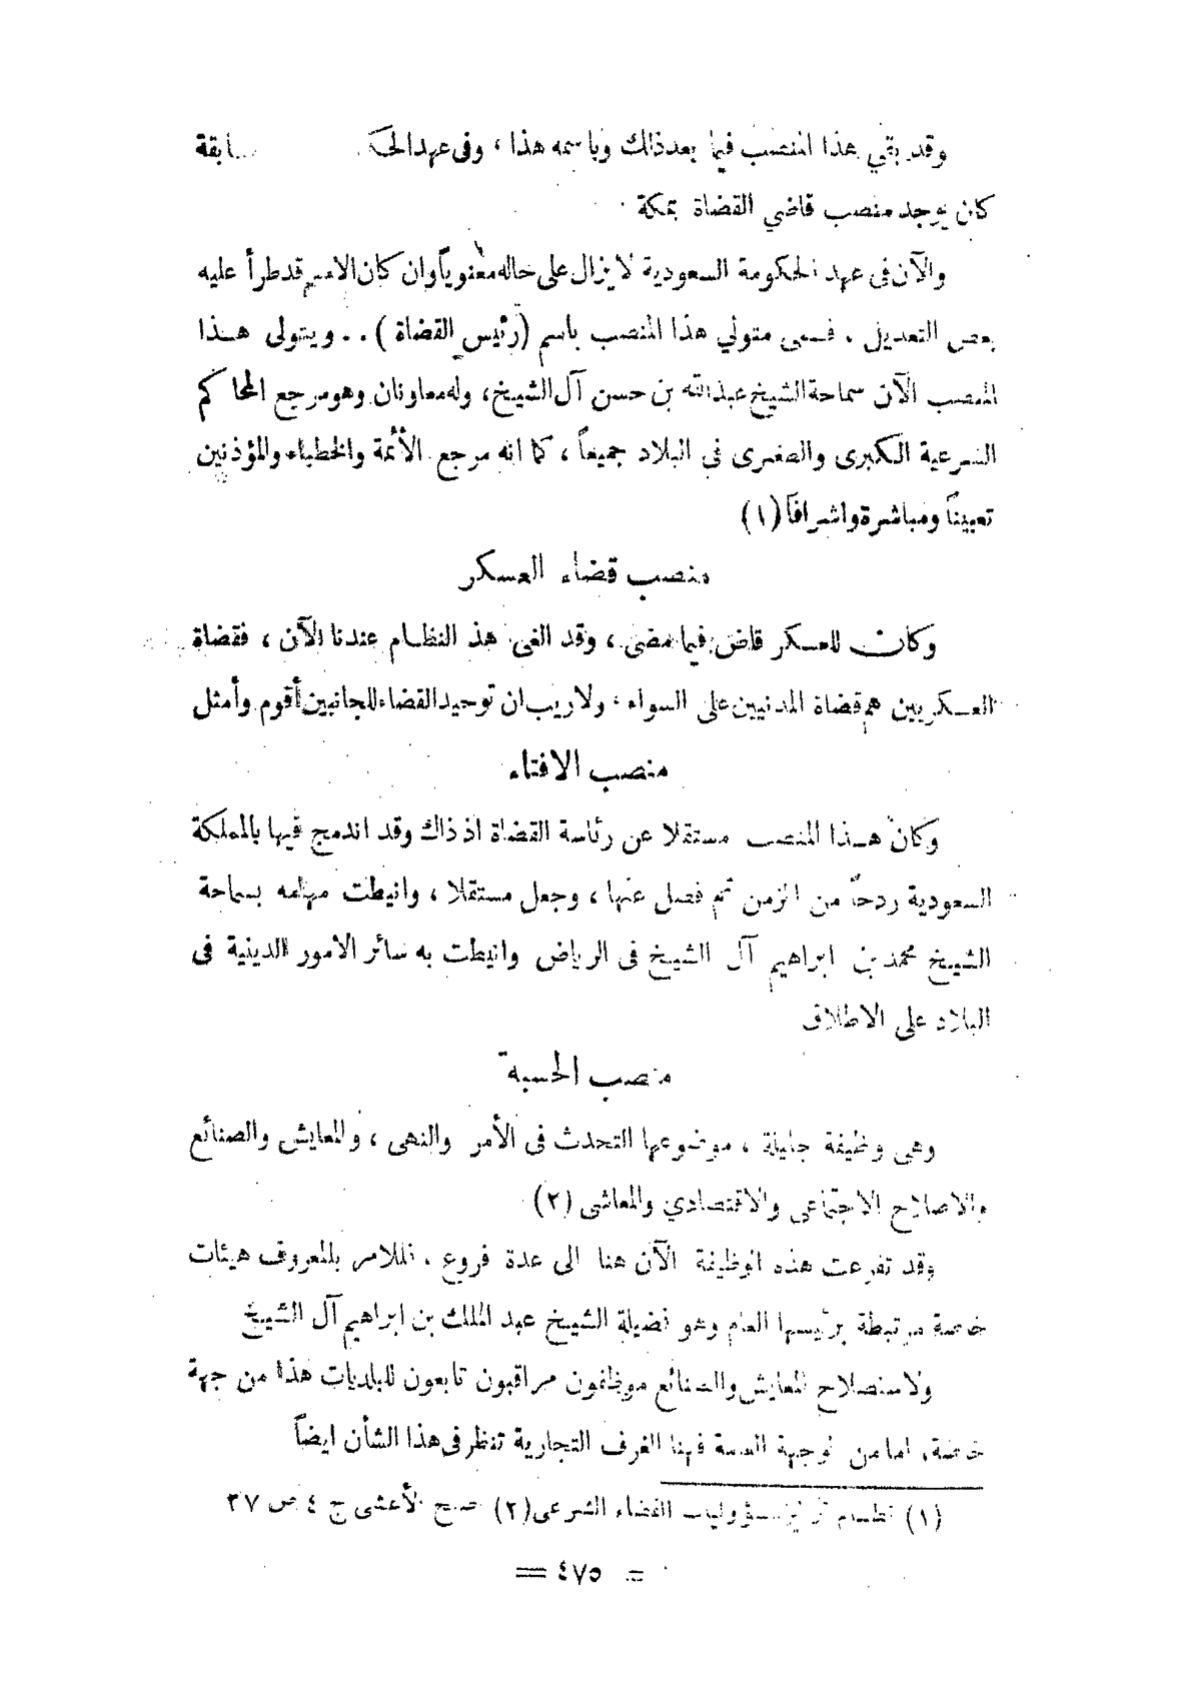 وقد بقي هذا المنصب فيما بعد ذلك وباسمه هذا ، وفى عهد سابقة
كان يوجد منصب قاضي القضاة بمكة
والآن فى عهد الحكومة السعودية لا يزال على حاله معنوياً وان كان الاسم قد طرأ عليه
بعض التعديل . فسمى متولي هذا المنصب باسم (رئيس القضاة ) . . ويتولى هـذا
المنصب الآن سماحة الشيخ عبد الله بن حسن آل الشيخ ، وله معاونان وهو مرجع المحاكم
الشرعية الكبرى والصغرى فى البلاد جميعاً ، كما انه مرجع الأئمة والخطباء والمؤذنين
تعييناً ومباشرة واشرافاً (١)
منصب قضاء العسكر
وكان للعسكر قاض فيما مضى ، وقد الغى هذ النظام عندنا الآن ، فقضاة
العسكريين هم قضاة المدنيين على السواء ، ولا ريب ان توحيد القضاء للجانبين أقوم وأمثل
منصب الافتاء
وكان هـذا المنصب مستقلا عن رئاسة القضاة اذ ذاك وقد اندمج فيها بالمملكة
السعودية ردحاً من الزمن ثم فصل عنها ، وجعل مستقلا ، وانيطت مهامه بسماحة
الشيخ محمد بن ابراهيم آل الشيخ فى الرياض وانيطت به سائر الامور الدينية فى
البلاد على الاطلاق
منصب الحسبة
وهى وظيفة جليلة ، موضوعها التحدث فى الأمر والنهى ، والمعايش والصنائع
والاصلاح الاجتماعى والاقتصادي والمعاشى (٢)
وقد تفرعت هذه الوظيفة الآن هنا الى عدة فروع . فللامر بالمعروف هيئات
خاصة مرتبطة برئيسها العام وهو فضيلة الشيخ عبد الملك بن ابراهيم آل الشيخ
ولاستصلاح المعايش والصنائع موظفون مراقبون تابعون للبلديات هذا من جهة
خاصة، اما من الوجهة العامة فهنا الغرف التجارية تنظر فى هذا الشأن ايضاً
(١) نظام مسؤوليات القضاء الشرعى (٢) صبح الأعشى ج ٤ ص ٣٧
= ٥٧٤ =